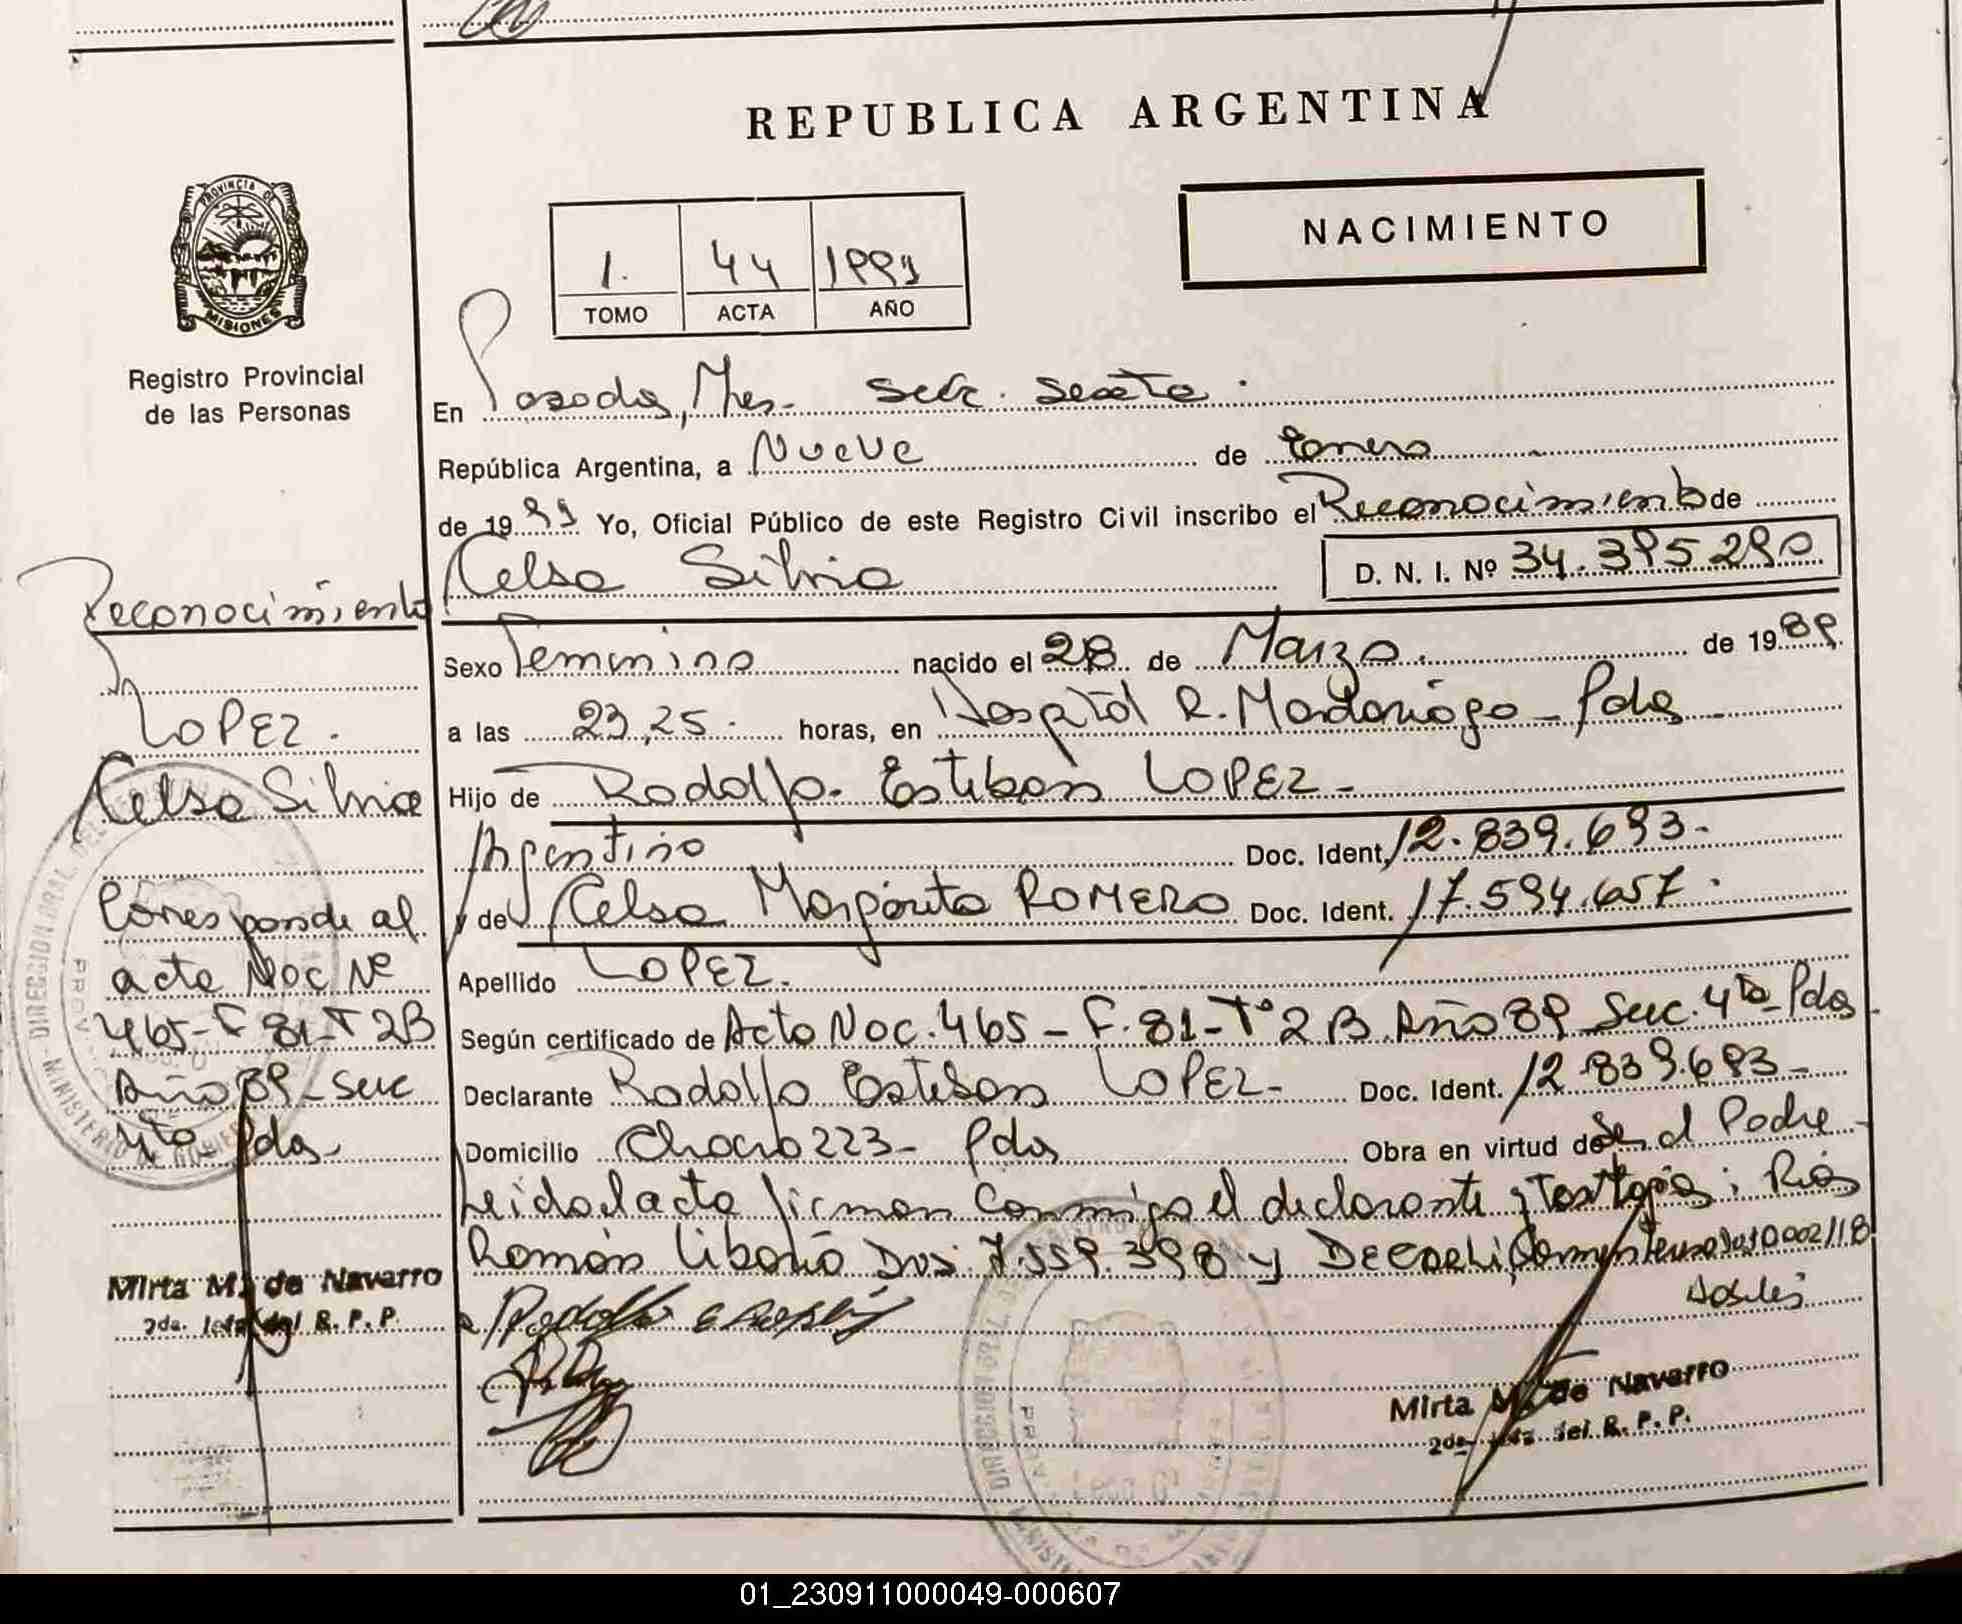 REPUBLICA ARGENTINA
NACIMIENTO
1. 44 1991
TOMO ACTA AÑO
PROVINCIA DE
MISIONES
Registro Provincial
de las Personas
En Posadas, Mnes. Secc. Sexta.
República Argentina, a Nueve de Enero
de 1991 Yo, Oficial Público de este Registro Civil inscribo el Reconocimiento de
Celsa Silvia D. N. I. Nº 34.395.290
Sexo Femenino nacido el 28 de Marzo. de 1989.
a las 23,25. horas, en Hospital R. Madariaga - Pdas
Hijo de Rodolfo Esteban LOPEZ -
Argentino Doc. Ident. 12.839.693-
y de Celsa Margarita ROMERO Doc. Ident. 17.594.657.
Apellido LOPEZ.
Según certificado de Acta Nac. 465 - F. 81 - Tº 2 B Año 89 Secc. 4ta Pdas
Declarante Rodolfo Esteban LOPEZ - Doc. Ident. 12.839.693-
Domicilio Chaco 223 - Pdas Obra en virtud de Ser el Padre
Leida el acta firman conmigo el declarante y testigos: Ríos
Román Liborio DNI 7.559.398 y
Reconocimiento
LOPEZ.
Celsa Silvia
Corresponde al
acta Nac Nº
465 - F 81 - T 2B
Año 89 - Secc
4ta Pdas
Mirta M. de Navarro
2da. Jefa del R. P. P.
Mirta M. de Navarro
2da. Jefa del R. P. P.
01_230911000049-000607